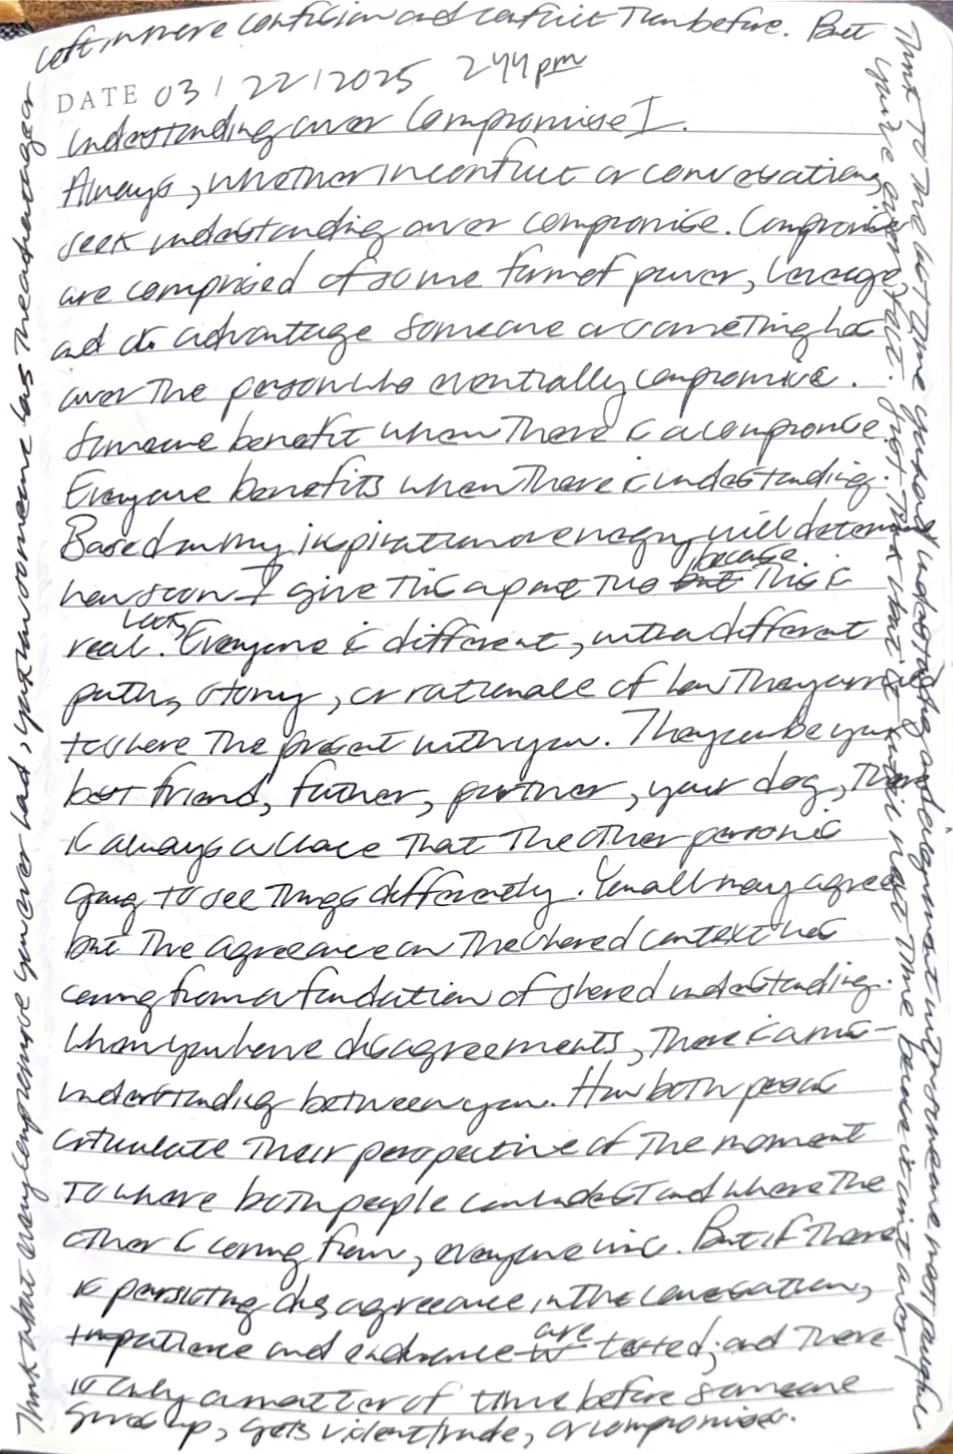 left in more confusion and conflict than before. But
DATE 03 / 22 / 2025 2:44pm
Understanding over Compromise I.
Always, whether in conflict or conversation,
seek understanding over compromise. Compromise
are comprised of some form of power, leverage
and or advantage someone or something has
over the person who eventually compromise.
Someone benefit when there is a compromise.
Everyone benefits when there is understanding.
Based on my inspiration or energy, will determ
how soon I give this a part two because this is
real. Look, Everyone is different, with a different
path, story, or rationale of how they arrived
to where the present with you. They can be your
best friend, father, partner, your dog, there
is always a chance that the other person is
going to see things differently. You all may agree
but the agreeance on the shared context was
coming from a foundation of shared understanding.
When you have disagreements, there is a mis-
understanding between you. How both people
articulate their perspective of the moment
to where both people can understand where the
other is coming from, everyone wins. But if there
is persisting disagreeance in the conversation,
impatience and endurance are tested; and there
is only a matter of time before someone
gives up, gets violent/rude, or compromises.
Think about every compromise you ever had, you know someone has the advantage or
Think to the last time you had understanding and alignment with someone most painful
you're given, fact. Just think what is it until next time because it isn't over!